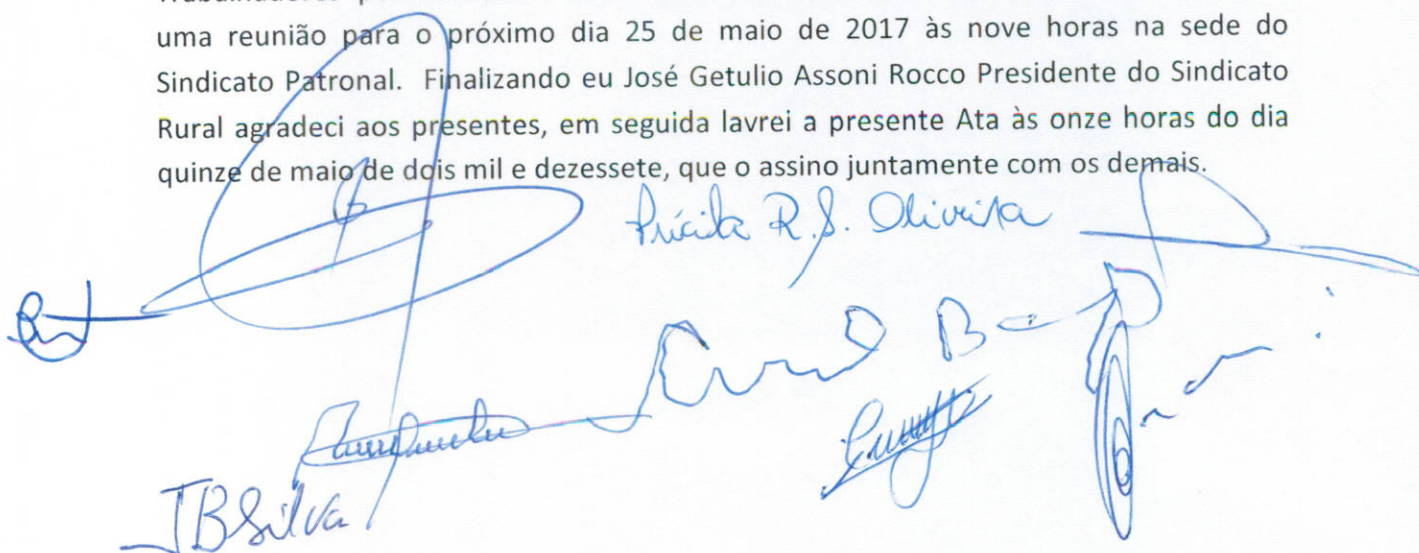 Trabalhadores
uma reunião para o próximo dia 25 de maio de 2017 às nove horas na sede do
Sindicato Patronal. Finalizando eu José Getulio Assoni Rocco Presidente do Sindicato
Rural agradeci aos presentes, em seguida lavrei a presente Ata às onze horas do dia
quinze de maio de dois mil e dezessete, que o assino juntamente com os demais.
R. S. Oliveira
JBSilva